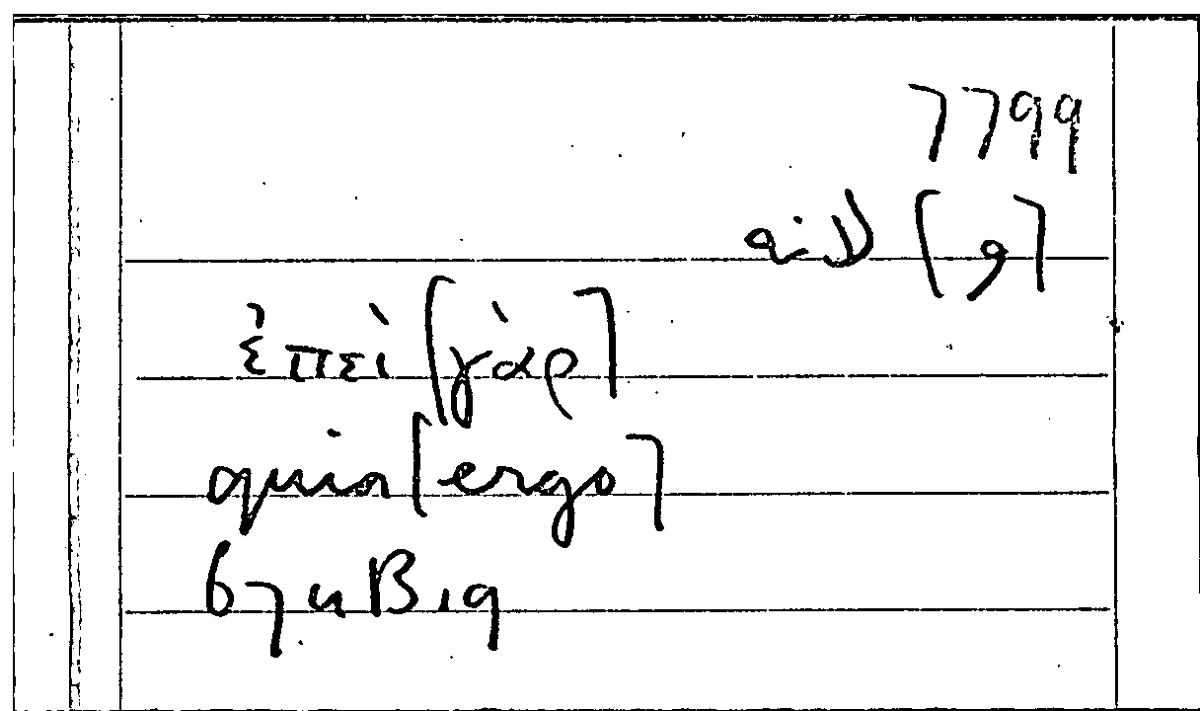 7799
[و] لانه
ἐπεὶ [γὰρ]
quia [ergo]
67aB19